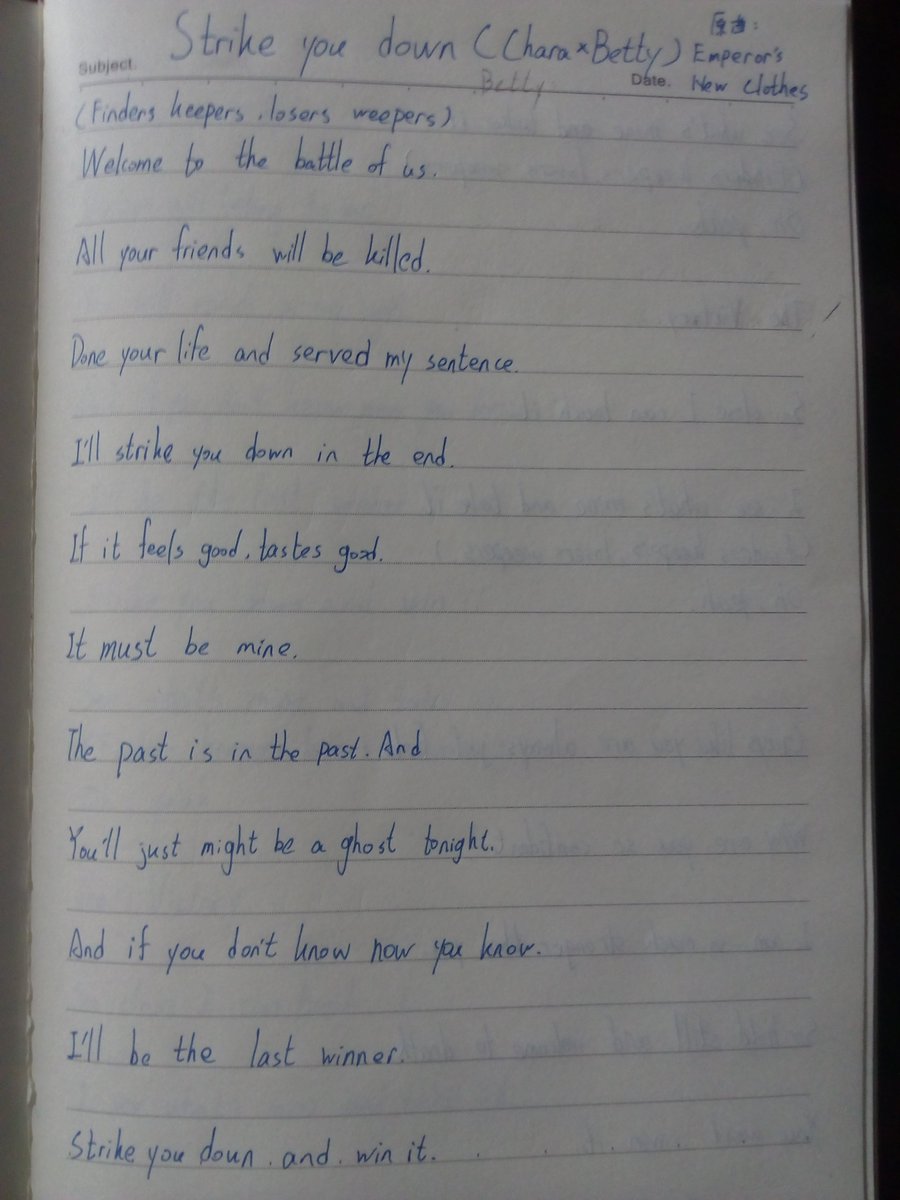 Strike you down (Chara×Betty) 原曲:
Subject. Betty Date. Emperor's
New Clothes
(Finders keepers, losers weepers)
Welcome to the battle of us.
All your friends will be killed.
Done your life and served my sentence.
I'll strike you down in the end.
If it feels good, tastes good.
It must be mine.
The past is in the past. And
You'll just might be a ghost tonight.
And if you don't know now you know.
I'll be the last winner.
Strike you down. and. win it.